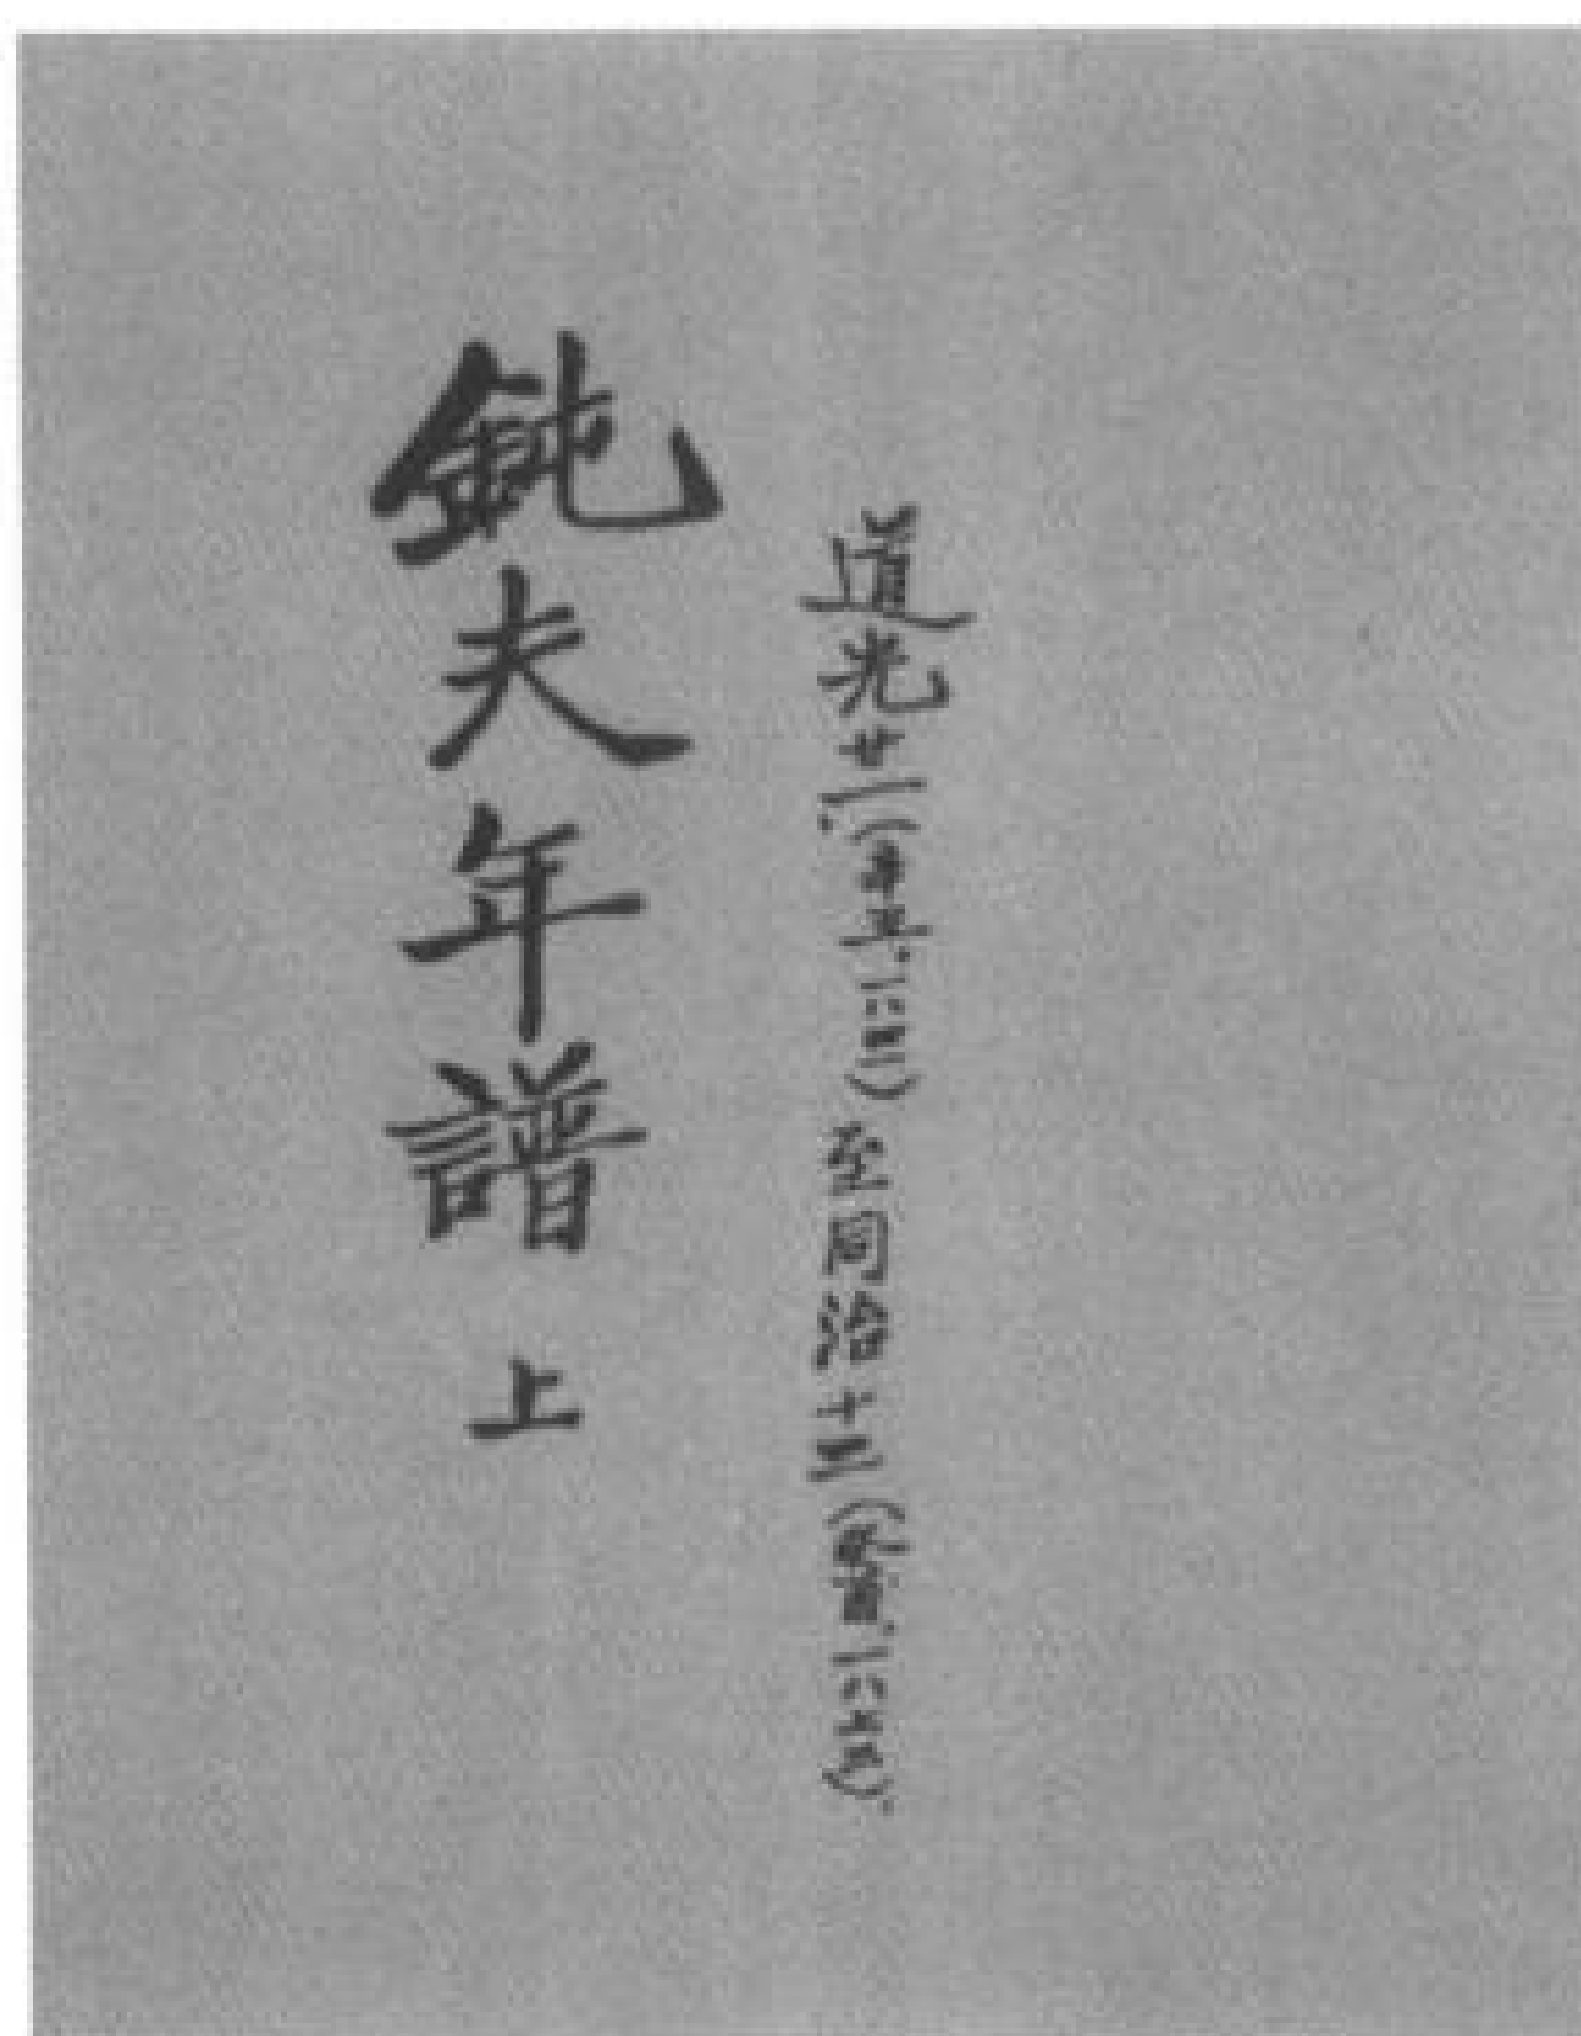 道光廿一(辛丑,一八四一)至同治十三(一八七四).
鈍夫年譜 上